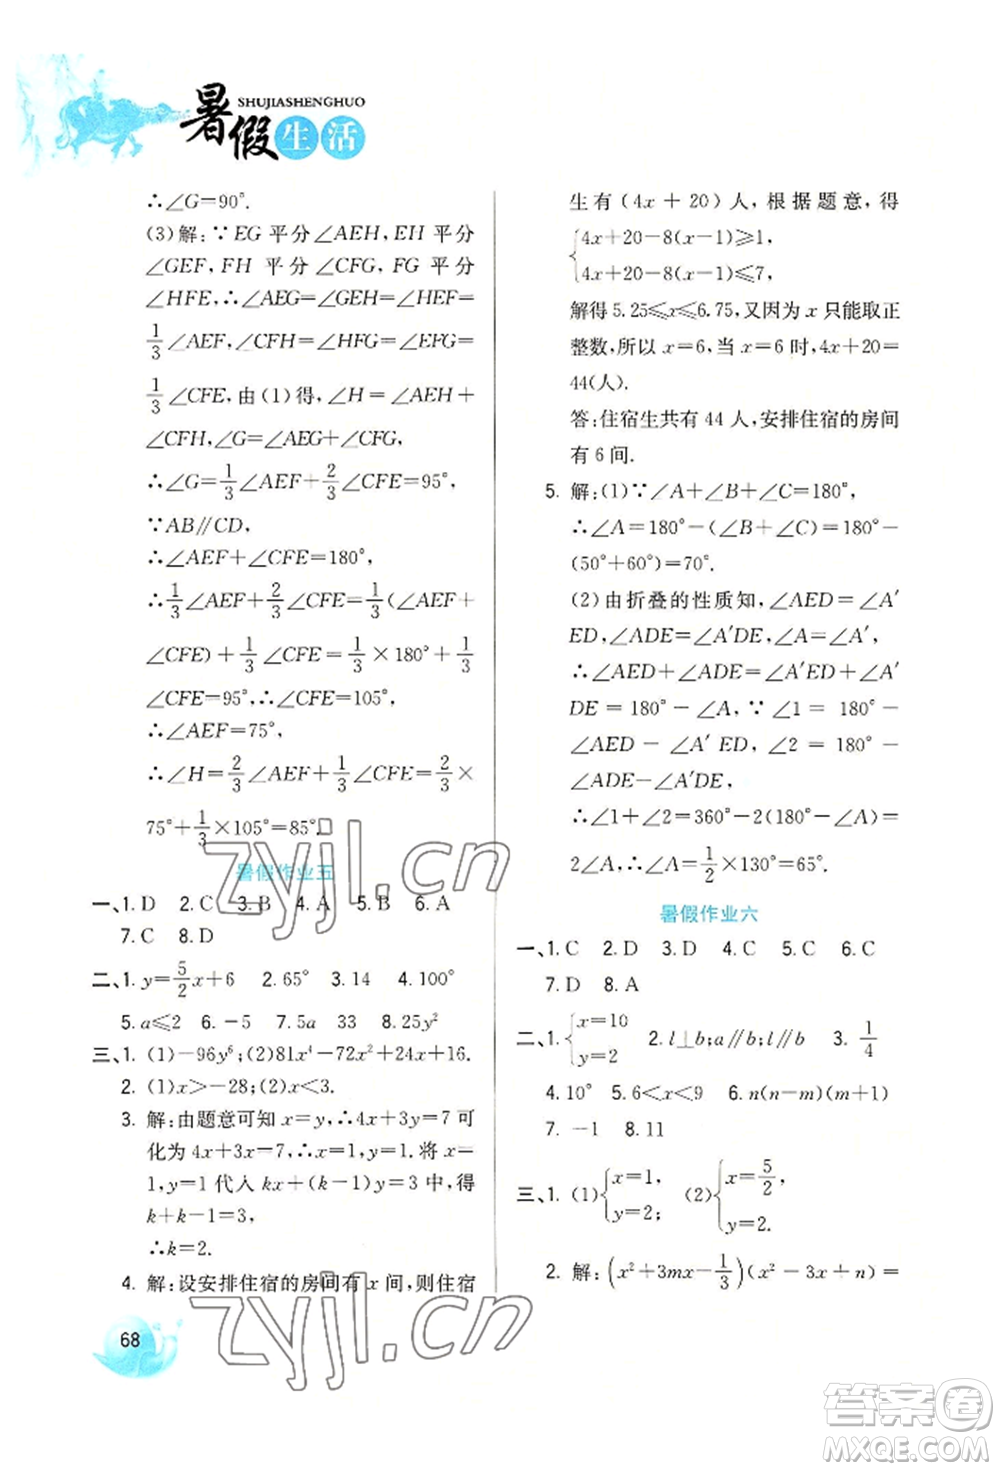 暑假生活
SHUJIASHENGHUO
∴∠G=90°.
(3)解:∵EG平分∠AEH,EH平分
∠GEF,FH平分∠CFH,FG平分
∠HFE,∴∠AEG=∠GEH=∠HEF=
1/3∠AEF,∠CFH=∠HFG=∠GFE=
1/3∠CFE,由(1)得,∠H=∠AEH+
∠CFH,∠G=∠AEG+∠CFG,
∴∠G=1/3∠AEF+2/3∠CFE=95°,
∵AB∥CD,
∴∠AEF+∠CFE=180°,
∴1/3∠AEF+2/3∠CFE=1/3(∠AEF+
∠CFE)+1/3∠CFE=1/3×180°+1/3
∠CFE=95°,∴∠CFE=105°,
∴∠AEF=75°,
∴∠H=2/3∠AEF+1/3∠CFE=2/3×
75°+1/3×105°=85°.
暑假作业五
一、1. D 2. C 3. B 4. A 5. B 6. A
7. C 8. D
二、1. y=5/2x+6 2. 65° 3. 14 4. 100°
5. a≤2 6. -5 7. 5a 33 8. 25y²
三、1. (1)-96y⁶;(2)81x⁴-72x²+24x+16.
2. (1)x>-28;(2)x<3.
3. 解:由题意可知x=y,∴4x+3y=7可
化为4x+3x=7,∴x=1,y=1.将x=
1,y=1代入kx+(k-1)y=3中,得
k+k-1=3,
∴k=2.
4. 解:设安排住宿的房间有x间,则住宿
生有(4x+20)人,根据题意,得
{4x+20-8(x-1)≥1,
4x+20-8(x-1)≤7,
解得5.25≤x≤6.75,又因为x只能取正
整数,所以x=6,当x=6时,4x+20=
44(人).
答:住宿生共有44人,安排住宿的房间
有6间.
5. 解:(1)∵∠A+∠B+∠C=180°,
∴∠A=180°-(∠B+∠C)=180°-
(50°+60°)=70°.
(2)由折叠的性质知,∠AED=∠A′
ED,∠ADE=∠A′DE,∠A=∠A′,
∴∠AED+∠ADE=∠A′ED+∠A′
DE=180°-∠A,∵∠1=180°-
∠AED-∠A′ED,∠2=180°-
∠ADE-∠A′DE,
∴∠1+∠2=360°-2(180°-∠A)=
2∠A,∴∠A=1/2×130°=65°.
暑假作业六
一、1. C 2. D 3. D 4. C 5. C 6. C
7. D 8. A
二、1. {x=10 y=2 2. l⊥b;a∥b;l∥b 3. 1/4
4. 10° 5. 6<x<9 6. n(n-m)(m+1)
7. -1 8. 11
三、1. (1){x=1, y=2; (2){x=5/2, y=2.
2. 解:(x²+3mx-1/3)(x²-3x+n)=
68
zyjl.cn
zyjl.cn
答案圈
MXQE.COM